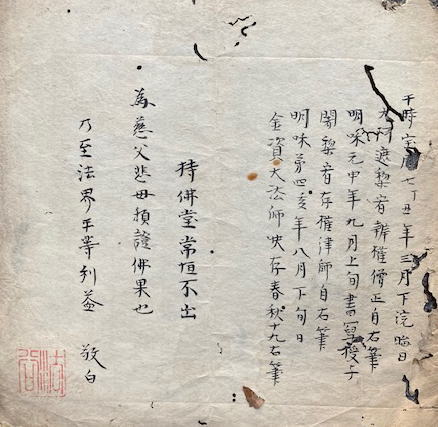 于時宝暦七丁丑年三月下浣晦日
遮黎者催僧正自右筆
明味元申年九月上旬書写授于
闍黎者存催律師自右筆
明味第四亥年八月下旬日
金資大法師快存春秋十九右筆
持佛堂常恒不出
為慈父悲母頓證佛果也
乃至法界平等利益 敬白